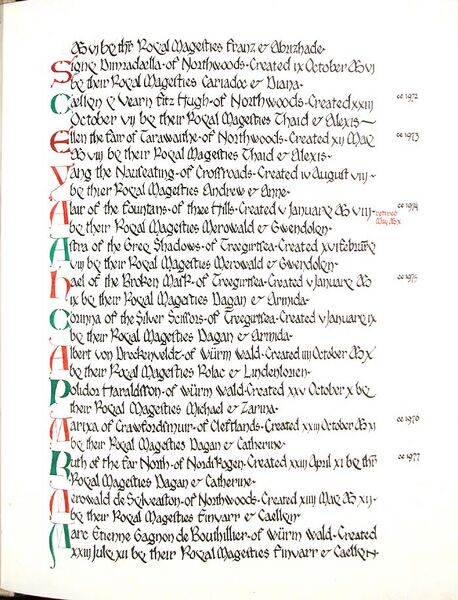 AS VI by thr Royal Majesties Franz & Abrizhade-
Signe Dimradaella-of Northwoods-Created ix October AS VI
by their Royal Majesties Cariadoc & Diana-
Caellyn y Vearn Fitz Hugh-of Northwoods-Created xxiij cc 1972
October vij by their Royal Majesties Thaid & Alexis~
Ellen the fair of Tarawaithe-of Northwoods-Created xij May cc 1973
AS viij by their Royal Majesties Thaid & Alexis-
Yang the Nauseating-of Crossroads-Created iv August viij-
by thier Royal Majesties Andrew & Anne-
Alair of the fountans-of three Hills-Created v January AS VIII- cc 1974 retired May AS x
by their Royal Majesties Merowald & Gwendolyn-
Astra of the Grey Shadows-of Treegirtsea-Created xvi february
viij by their Royal Majesties Merowald & Gwendolyn-
hael of the Broken Mask-of Treegirtsea-Created v January AS cc 1975
ix by their Royal Majesties Dagan & Armida-
Corinna of the Silver Scissors-of Treegirtsea-Created v January ix
by their Royal Majesties Dagan & Armida-
Albert von Dreckenveldt-of Würm Wald-Created iiij October AS X
by their Royal Majesties Rolac & Lindenlorien-
Polidor Haraldsson-of Würm Wald-Created xxv October x by
their Royal Majesties Michael & Zarina-
Marixa of Crawfordsmuir-of Cleftlands-Created xxiij October AS xi cc 1976
by their Royal Majesties Dagan & Catherine-
Ruth of the far North-of Nordskogen-Created xxiij April xi by thr cc 1977
Royal Majesties Dagan & Catherine-
Merowald de Sylveaston-of Northwoods-Created xiiij May AS xij-
by their Royal Majesties Finvarr & Caellyn-
Marc Etienne Gagnon de Bouthillier-of Würm Wald-Created
xxiij July xij by their Royal Majesties Finvarr & Caellyn